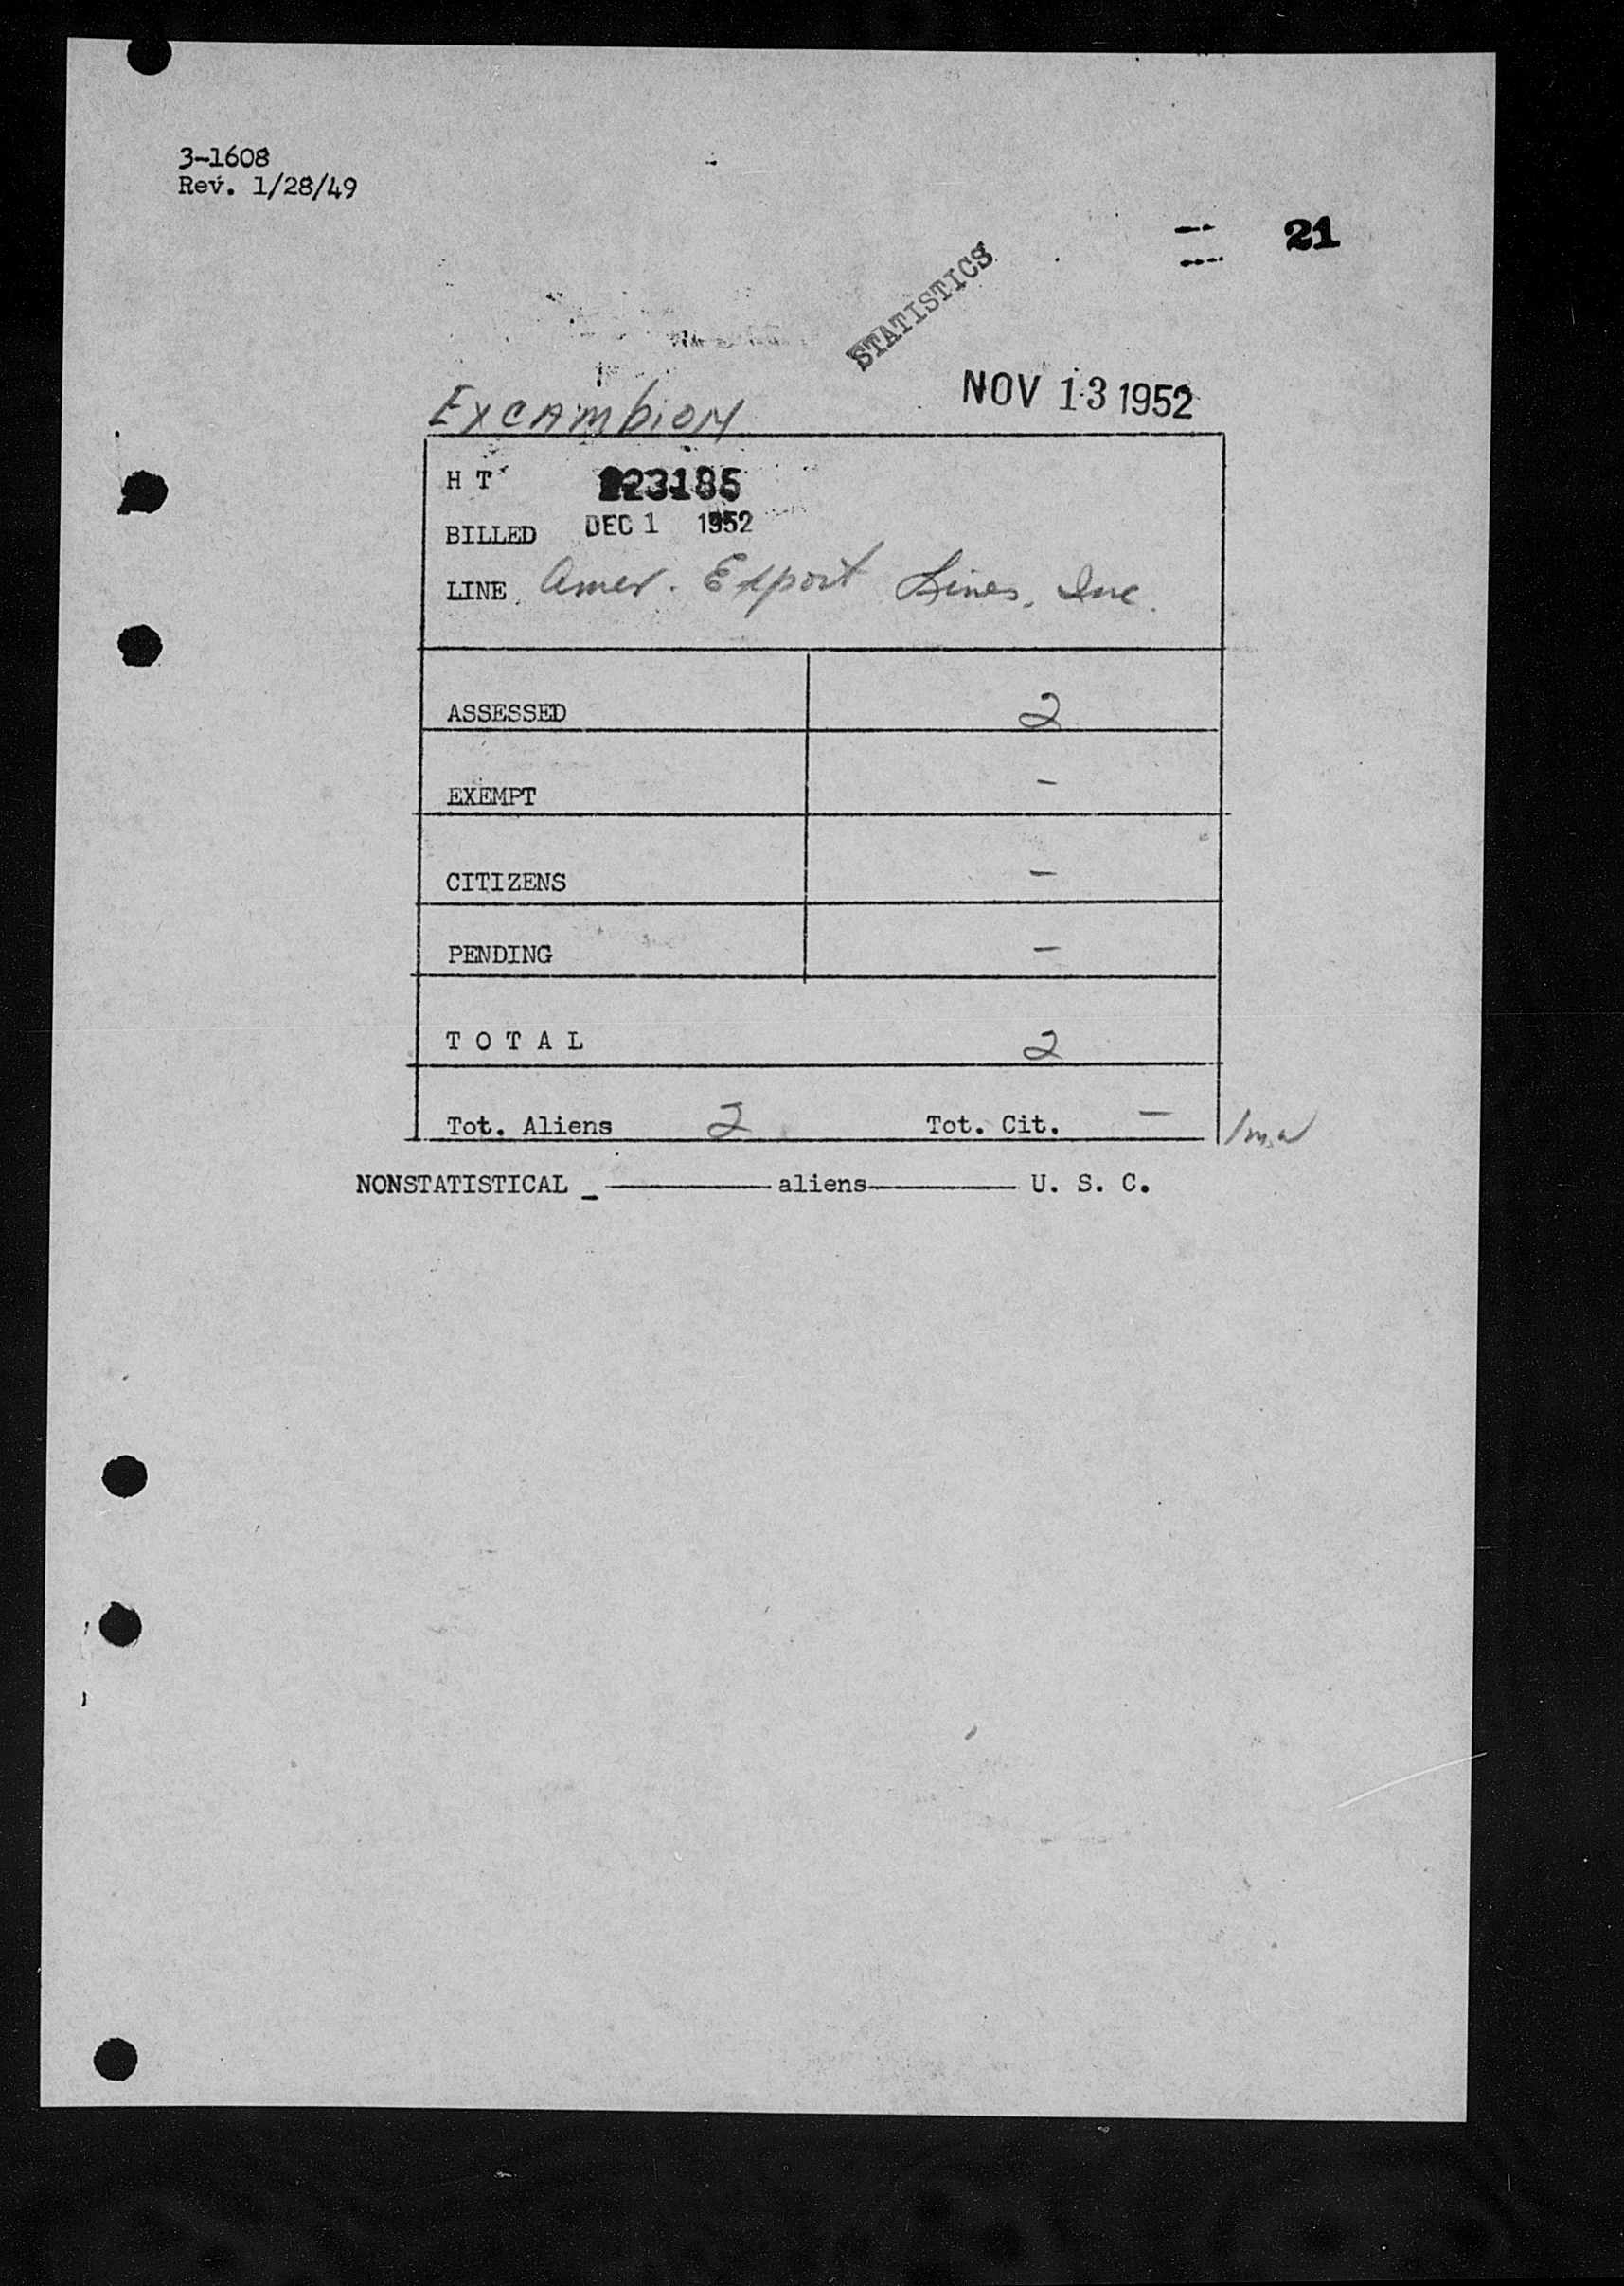 3-1608
Rev. 1/28/49
21
STATISTICS
NOV 13 1952
Excambion
H T 223185
BILLED DEC 1 1952
LINE Amer. Export Lines, Inc.
ASSESSED 2
EXEMPT -
CITIZENS -
PENDING -
T O T A L 2
Tot. Aliens 2 Tot. Cit. -
NONSTATISTICAL _ aliens U. S. C.